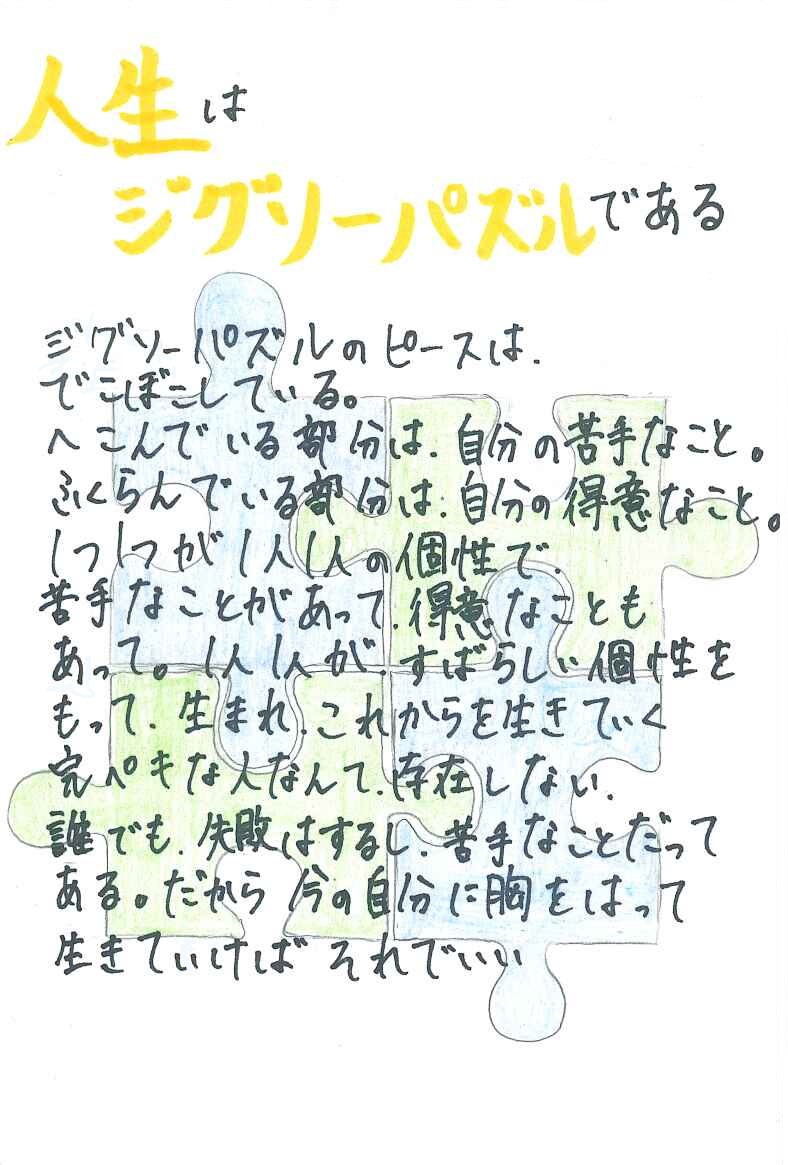 人生は
ジグソーパズルである
ジグソーパズルのピースは、
でこぼこしている。
へこんでいる部分は、自分の苦手なこと。
ふくらんでいる部分は、自分の得意なこと。
1つ1つが1人1人の個性で、
苦手なことがあって、得意なことも
あって。1人1人が、すばらしい個性を
もって、生まれ、これからを生きていく
完ペキな人なんて、存在しない、
誰でも、失敗はするし、苦手なことだって
ある。だから今の自分に胸をはって
生きていけばそれでいい